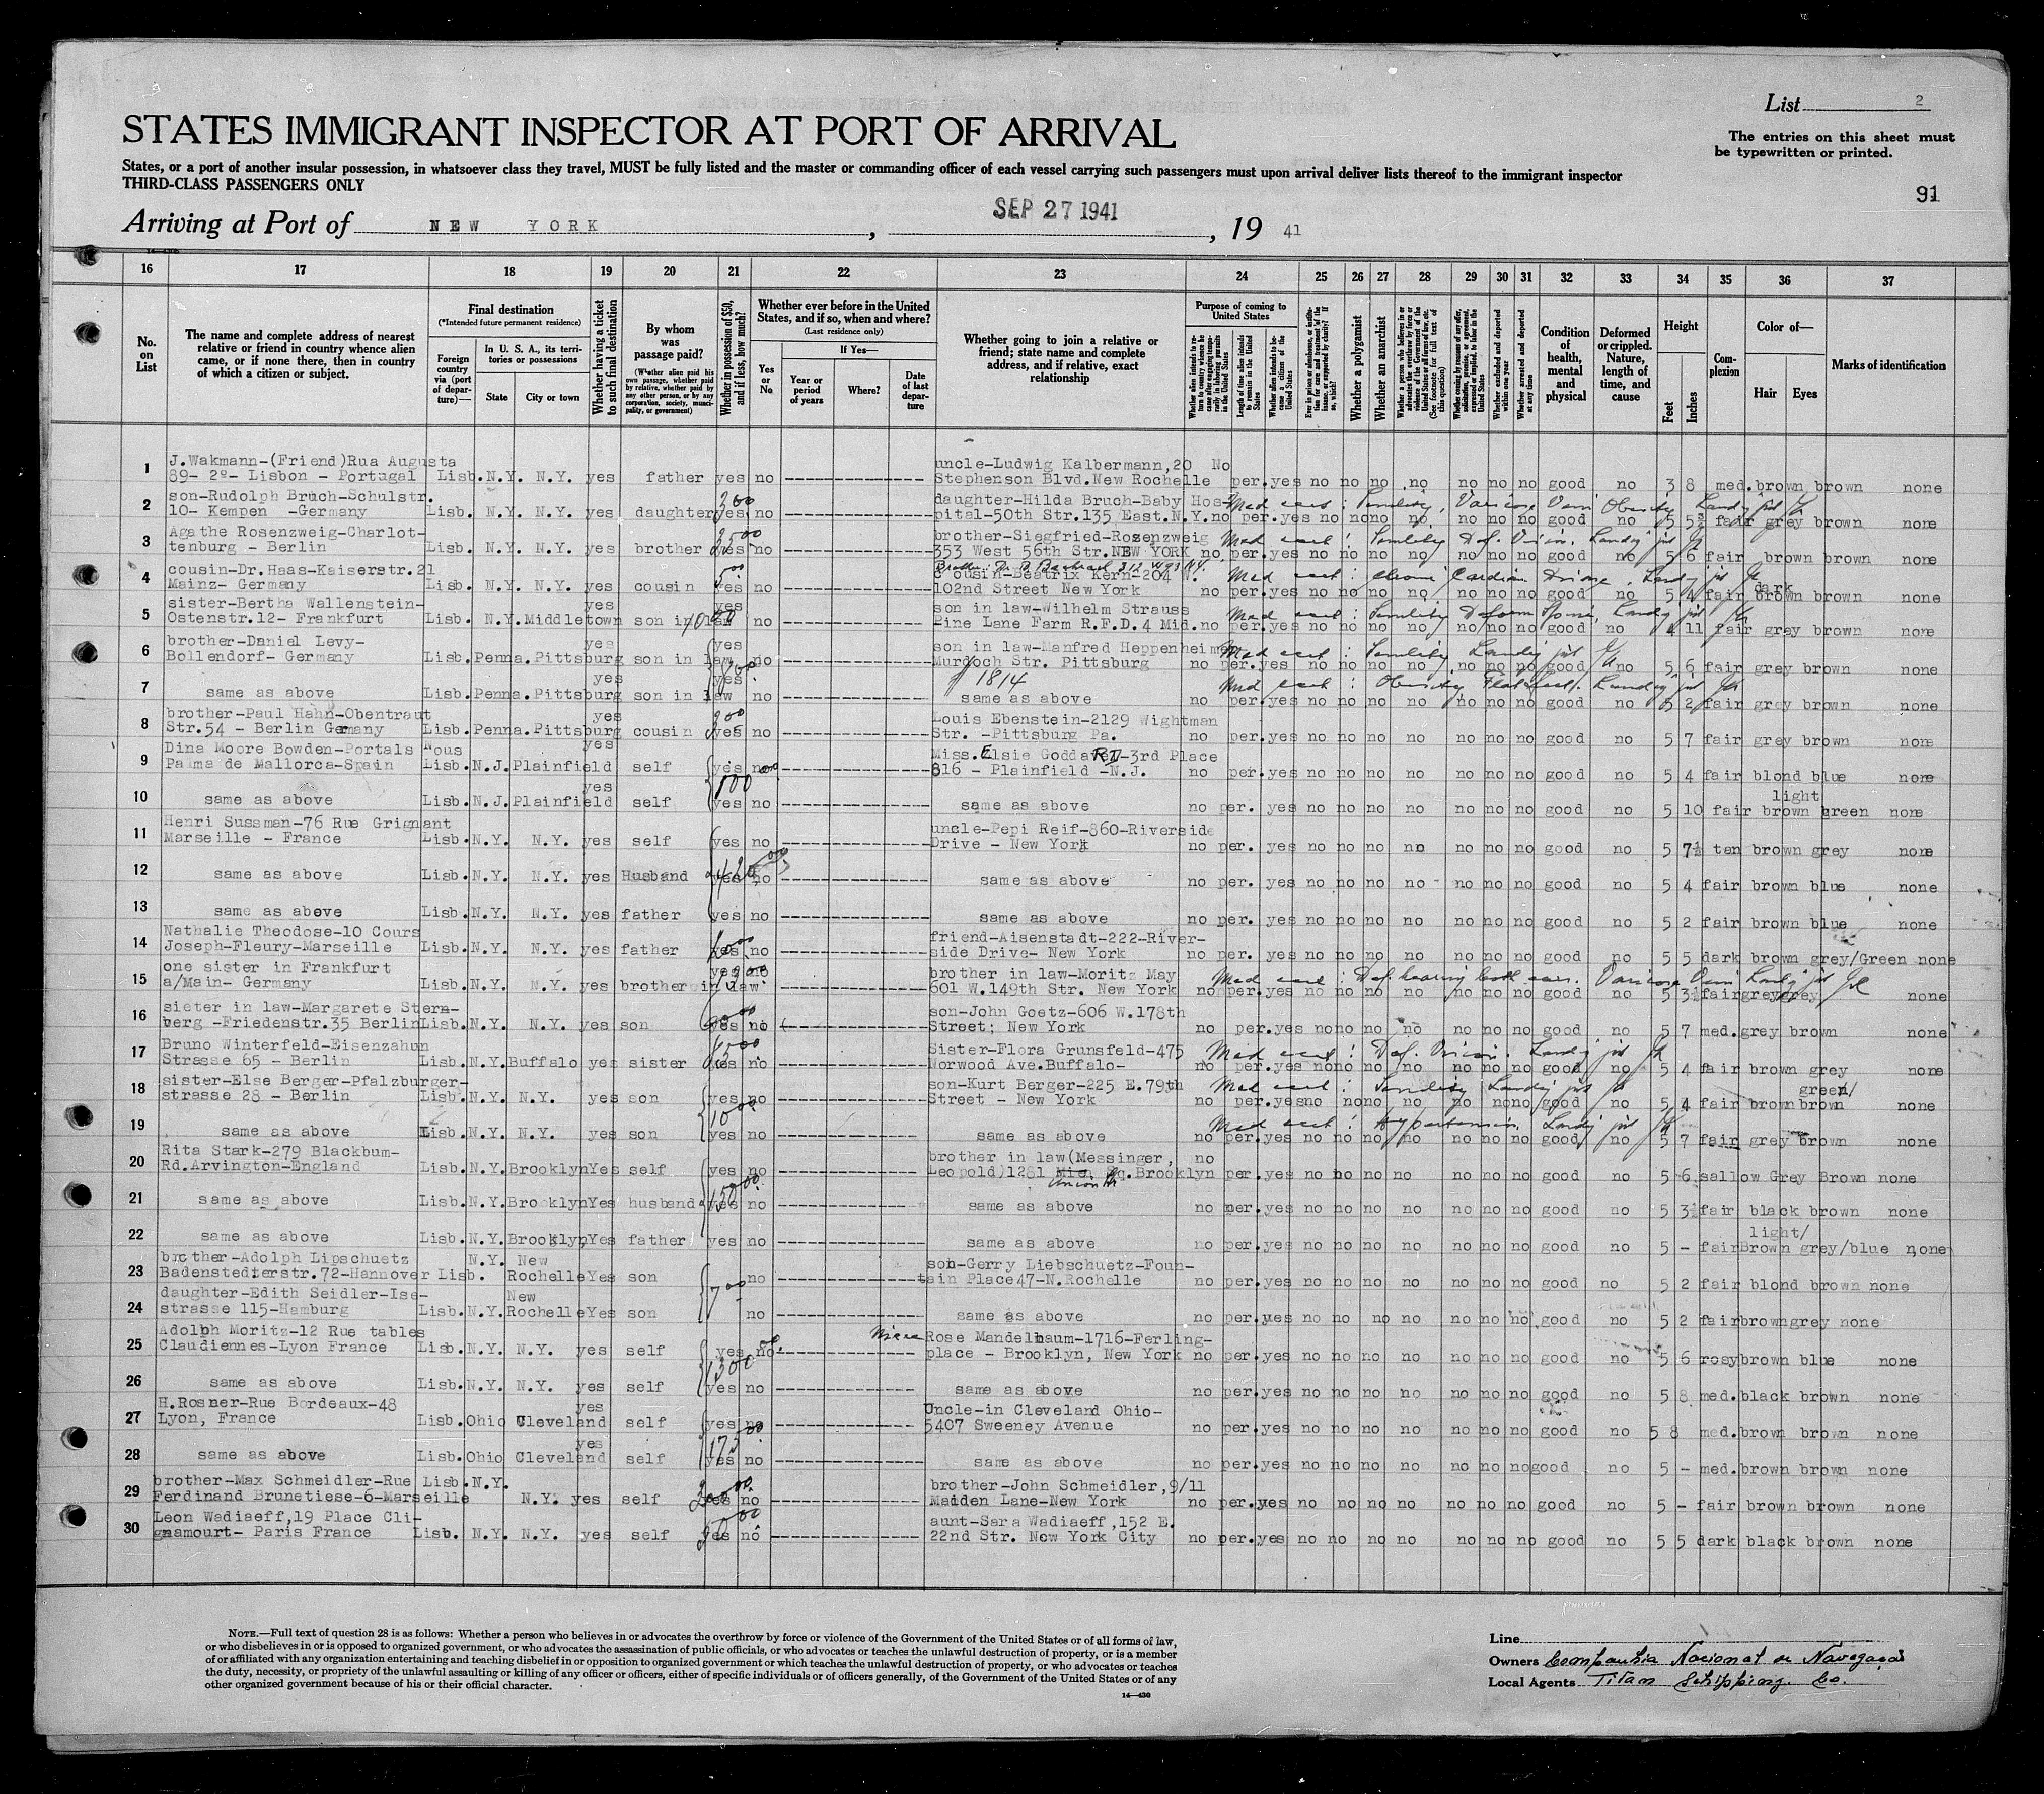 List 2
STATES IMMIGRANT INSPECTOR AT PORT OF ARRIVAL
The entries on this sheet must
be typewritten or printed.
States, or a port of another insular possession, in whatsoever class they travel, MUST be fully listed and the master or commanding officer of each vessel carrying such passengers must upon arrival deliver lists thereof to the immigrant inspector
THIRD-CLASS PASSENGERS ONLY
91
Arriving at Port of NEW YORK, SEP 27 1941, 19 41
16 17 18 19 20 21 22 23 24 25 26 27 28 29 30 31 32 33 34 35 36 37
No. on List
The name and complete address of nearest relative or friend in country whence alien came, or if none there, then in country of which a citizen or subject.
Final destination
(*Intended future permanent residence)
Foreign country via (port of departure)—
In U. S. A., its territories or possessions
State City or town
Whether having a ticket to such final destination
By whom was passage paid?
(Whether alien paid his own passage, whether paid by relative, whether paid by any other person, or by any corporation, society, municipality, or government)
Whether in possession of $50, and if less, how much?
Whether ever before in the United States, and if so, when and where?
(Last residence only)
Yes or No
If Yes—
Year or period of years
Where?
Date of last departure
Whether going to join a relative or friend; state name and complete address, and if relative, exact relationship
Purpose of coming to United States
Length of time alien intends to remain in the United States
Whether alien intends to become a citizen of the United States
Whether a polygamist
Whether an anarchist
Whether excluded and deported within one year
Whether arrested and deported at any time
Condition of health, mental and physical
Deformed or crippled. Nature, length of time, and cause
Height
Feet Inches
Complexion
Color of—
Hair Eyes
Marks of identification
1 J.Wakmann-(Friend)Rua Augusta uncle-Ludwig Kalbermann,20 No
89- 2º- Lisbon - Portugal Lisb. N.Y. N.Y. yes father yes no Stephenson Blvd.New Rochelle per. yes no no no no no no no good no 3 8 med. brown brown none
2 son-Rudolph Bruch-Schulstr. 300 daughter-Hilda Bruch-Baby Hos- Med cert: Senility, Varicose Vein Obesity
10- Kempen -Germany Lisb. N.Y. N.Y. yes daughter yes no pital-50th Str.135 East.N.Y. no per. yes no no no no no no no good no 5 5½ fair grey brown none
3 Agathe Rosenzweig-Charlot- brother-Siegfried-Rosenzweig Med cert: Senility Def. Vision.
tenburg - Berlin Lisb. N.Y. N.Y. yes brother yes no 353 West 56th Str.NEW YORK no per. yes no no no no no no no good no 5 6 fair brown brown none
4 cousin-Dr.Haas-Kaiserstr.21 cousin-Beatrix Kern-204 W. Med cert: dark
Mainz- Germany Lisb. N.Y. N.Y. yes cousin yes no 102nd Street New York no per. yes no no no no no no no good no 5 4 fair brown brown none
5 sister-Bertha Wallenstein- yes yes son in law-Wilhelm Strauss Med cert: Senility
Ostenstr.12- Frankfurt Lisb. N.Y. Middletown son in law no Pine Lane Farm R.F.D.4 Mid. no per. yes no no no no no no no good no 4 11 fair grey brown none
6 brother-Daniel Levy- yes yes son in law-Manfred Heppenheimer Med cert: Senility
Bollendorf- Germany Lisb. Penna. Pittsburg son in law no Murdoch Str. Pittsburg no per. yes no no no no no no no good no 5 6 fair grey brown none
7 yes yes 1814 Med cert: Obesity, Flat feet.
same as above Lisb. Penna. Pittsburg son in law no same as above no per. yes no no no no no no no good no 5 2 fair grey brown none
8 brother-Paul Hahn-Obentraut yes 300 Louis Ebenstein-2129 Wightman
Str.54 - Berlin Germany Lisb. Penna. Pittsburg cousin yes no Str. -Pittsburg Pa. no per. yes no no no no no no no good no 5 7 fair grey brown none
9 Dina Moore Bowden-Portals Nous yes Miss.Elsie Goddard-3rd Place
Palma de Mallorca-Spain Lisb. N.J. Plainfield self yes no 816 - Plainfield -N.J. no per. yes no no no no no no no good no 5 4 fair blond blue none
10 yes light
same as above Lisb. N.J. Plainfield self yes no same as above no per. yes no no no no no no no good no 5 10 fair brown green none
11 Henri Sussman-76 Rue Grignant uncle-Pepi Reif-860-Riverside
Marseille - France Lisb. N.Y. N.Y. yes self yes no Drive - New York no per. yes no no no no no no no good no 5 7½ tan brown grey none
12 same as above Lisb. N.Y. N.Y. yes Husband yes no same as above no per. yes no no no no no no no good no 5 4 fair brown blue none
13 same as above Lisb. N.Y. N.Y. yes father yes no same as above no per. yes no no no no no no no good no 5 2 fair brown blue none
14 Nathalie Theodose-10 Cours friend-Aisenstadt-222-River-
Joseph-Fleury-Marseille Lisb. N.Y. N.Y. yes father yes no side Drive- New York no per. yes no no no no no no no good no 5 5 dark brown grey/Green none
15 one sister in Frankfurt yes no brother in law-Moritz May Med cert: Def. hearing both ears. Varicose Vein
a/Main- Germany Lisb. N.Y. N.Y. yes brother in law 601 W.149th Str. New York no per. yes no no no no no no no good no 5 3½ fair grey grey none
16 sieter in law-Margarete Stern- son-John Goetz-606 W.178th
berg -Friedenstr.35 Berlin Lisb. N.Y. N.Y. yes son yes no Street; New York no per. yes no no no no no no no good no 5 7 med. grey brown none
17 Bruno Winterfeld-Eisenzahun Sister-Flora Grunsfeld-475 Med cert: Def. Vision.
Strasse 65 - Berlin Lisb. N.Y. Buffalo yes sister yes no Norwood Ave.Buffalo- no per. yes no no no no no no no good no 5 4 fair brown grey none
18 sister-Else Berger-Pfalzburger- son-Kurt Berger-225 E.79th Med cert: Senility green/
strasse 28 - Berlin Lisb. N.Y. N.Y. yes son yes no Street - New York no per. yes no no no no no no no good no 5 4 fair brown brown none
19 Med cert: Hypertension
same as above Lisb. N.Y. N.Y. yes son yes no same as above no per. yes no no no no no no no good no 5 7 fair grey brown none
20 Rita Stark-279 Blackbum- brother in law(Messinger, no
Rd.Arvington-England Lisb. N.Y. Brooklyn Yes self yes no Leopold)1281 Brooklyn per. yes no no no no no no no good no 5 6 sallow Grey Brown none
21 same as above Lisb. N.Y. Brooklyn Yes husband yes no same as above no per. yes no no no no no no no good no 5 3½ fair black brown none
22 light/
same as above Lisb. N.Y. Brooklyn, Yes father yes no same as above no per. yes no no no no no no no good no 5 - fair Brown grey/blue none
23 brother-Adolph Lipschuetz N.Y. New son-Gerry Liebschuetz-Foun-
Badenstedterstr.72-Hannover Lisb. Rochelle Yes son no tain Place47-N.Rochelle no per. yes no no no no no no no good no 5 2 fair blond brown none
24 daughter-Edith Seidler-Ise- New 700
strasse 115-Hamburg Lisb. N.Y. Rochelle Yes son no same as above no per. yes no no no no no no no good no 5 2 fair brown grey none
25 Adolph Moritz-12 Rue tables Niece Rose Mandelbaum-1716-Ferling-
Claudiennes-Lyon France Lisb. N.Y. N.Y. yes self yes no place - Brooklyn, New York no per. yes no no no no no no no good no 5 6 rosy brown blue none
26 1300
same as above Lisb. N.Y. N.Y. yes self yes no same as above no per. yes no no no no no no no good no 5 8 med. black brown none
27 H.Rosner-Rue Bordeaux-48 yes Uncle-in Cleveland Ohio-
Lyon, France Lisb. Ohio Cleveland self yes no 5407 Sweeney Avenue no per. yes no no no no no no no good no 5 8 med. brown brown none
28 yes
same as above Lisb. Ohio Cleveland self yes no same as above no per. yes no no no no no no no good no 5 - med. brown brown none
29 brother-Max Schmeidler-Rue Lisb. N.Y. brother-John Schmeidler,9/11
Ferdinand Brunetiese-6-Marseille N.Y. yes self yes no Maiden Lane-New York no per. yes no no no no no no no good no 5 - fair brown brown none
30 Leon Wadiaeff,19 Place Cli- aunt-Sara Wadiaeff,152 E.
gnamourt- Paris France Lisb. N.Y. N.Y. yes self yes no 22nd Str. New York City no per. yes no no no no no no no good no 5 5 dark black brown none
NOTE.—Full text of question 28 is as follows: Whether a person who believes in or advocates the overthrow by force or violence of the Government of the United States or of all forms of law,
or who disbelieves in or is opposed to organized government, or who advocates the assassination of public officials, or who advocates or teaches the unlawful destruction of property, or is a member
of or affiliated with any organization entertaining and teaching disbelief in or opposition to organized government or which teaches the unlawful destruction of property, or who advocates or teaches
the duty, necessity, or propriety of the unlawful assaulting or killing of any officer or officers, either of specific individuals or of officers generally, of the Government of the United States or of any
other organized government because of his or their official character.
14—430
Line
Owners Companhia Nacional de Navegacao
Local Agents Titan Schipping Co.